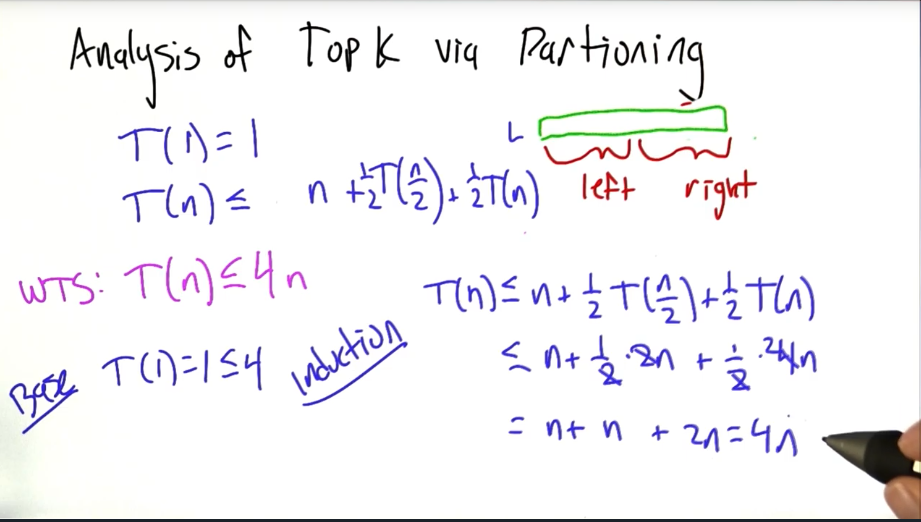 Analysis of Top K via Partioning
T(1)=1
L
left right
T(n) ≤ n + 1/2 T(n/2) + 1/2 T(n)
WTS: T(n) ≤ 4n
Base T(1)=1≤4
Induction
T(n) ≤ n + 1/2 T(n/2) + 1/2 T(n)
≤ n + 1/2 · 2n + 1/2 · 4n
= n + n + 2n = 4n